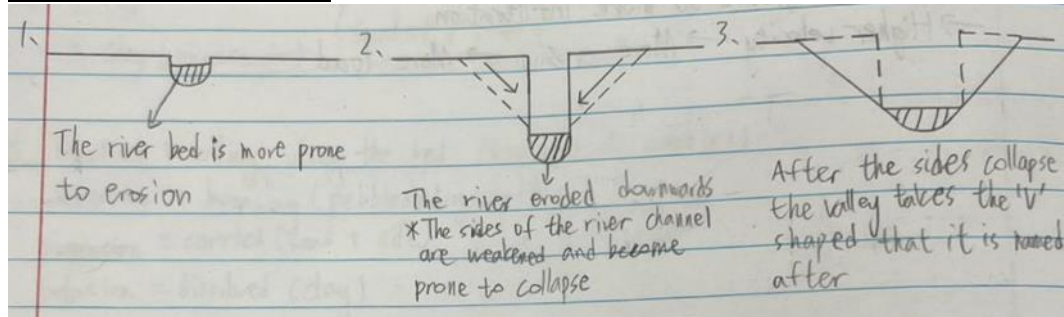 1.
The river bed is more prone
to erosion
2.
The river eroded downwards
*The sides of the river channel
are weakened and become
prone to collapse
3.
After the sides collapse
the valley takes the 'V'
shaped that it is named
after